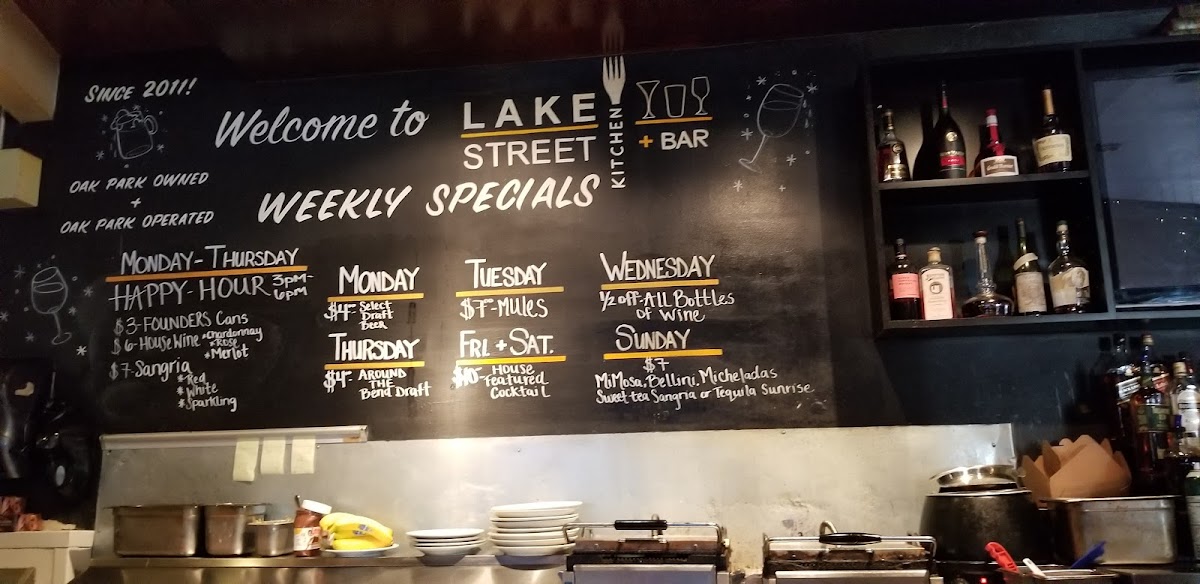 SINCE 2011!
OAK PARK OWNED
+
OAK PARK OPERATED
Welcome to
LAKE
STREET
KITCHEN
+ BAR
WEEKLY SPECIALS
MONDAY-THURSDAY
HAPPY-HOUR 3PM-
6PM
$3-FOUNDERS Cans
$6-House Wine *Chardonnay
*Rose
*Merlot
$7-Sangria
*Red
*White
*Sparkling
MONDAY
$4- Select
Draft
Beer
THURSDAY
$4- AROUND
THE
Bend Draft
TUESDAY
$7-MULES
FRI. + SAT.
$10- House
Featured
Cocktail
WEDNESDAY
1/2 off-All Bottles
of Wine
SUNDAY
$7
MiMosa, Bellini, Micheladas
Sweet tea Sangria or Tequila Sunrise